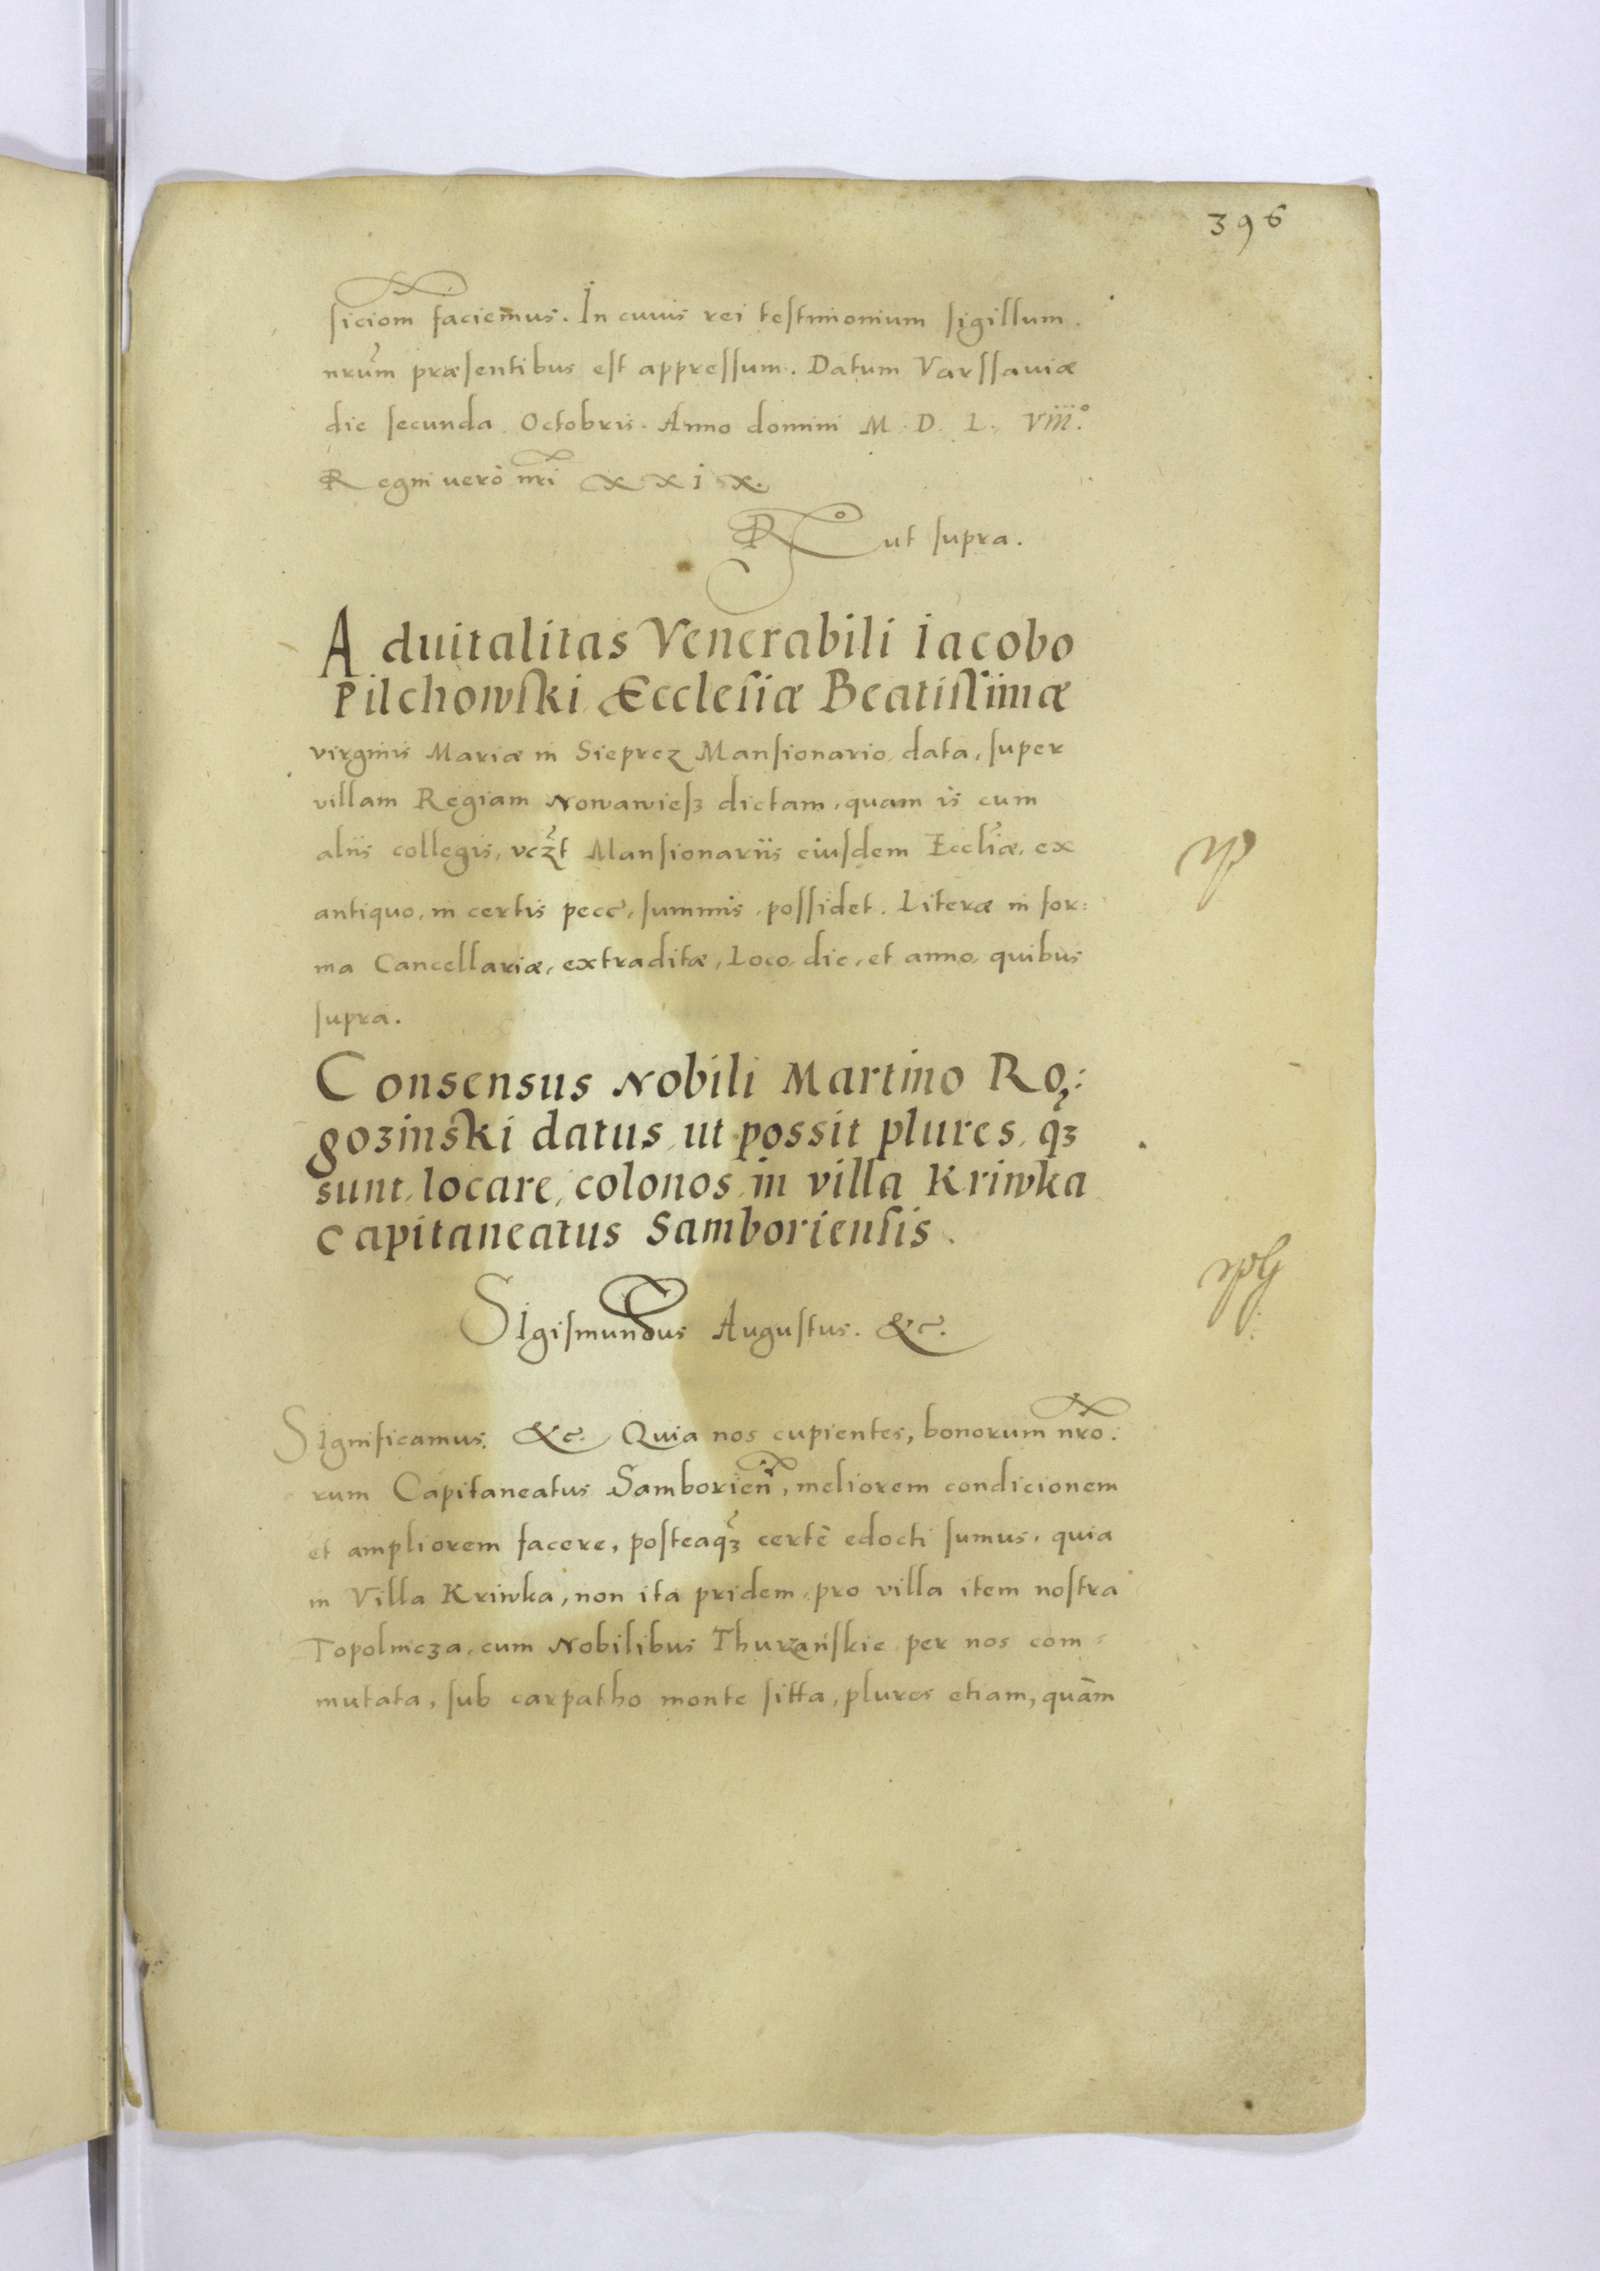 396
siciom faciemus. In cuius rei testimonium sigillum.
nrum præsentibus est appressum. Datum Varssauiæ
die secunda Octobris. Anno domini M. D. L. Viii.°
Regni verò nri xxix.
R° ut supra.
Aduitalitas Venerabili iacobo
Pilchowski Æcclesiæ Beatissimæ
virginis Mariæ in Sieprcz Mansionario data, super
villam Regiam Nowawiesz dictam, quam is cum
aliis collegis, vczt Mansionariis eiusdem Eccliæ, ex
antiquo, in certis pecc, summis possidet. Literæ in for:
ma Cancellariæ, extraditæ, Loco, die, et anno, quibus
supra.
Consensus Nobili Martino Ro:
gozinski datus, ut possit plures, qz
sunt, locare, colonos in villa Kriwka
Capitaneatus Samboriensis.
Sigismundus Augustus. &c.
Significamus &c. Quia nos cupientes, bonorum nro:
rum Capitaneatus Samborien, meliorem condicionem
et ampliorem facere, posteaqz certè edocti sumus, quia
in Villa Kriwka, non ita pridem, pro villa item nostra
Topolnicza, cum Nobilibus Thurzańskie per nos com:
mutata, sub carpatho monte sitta, plures etiam, quàm